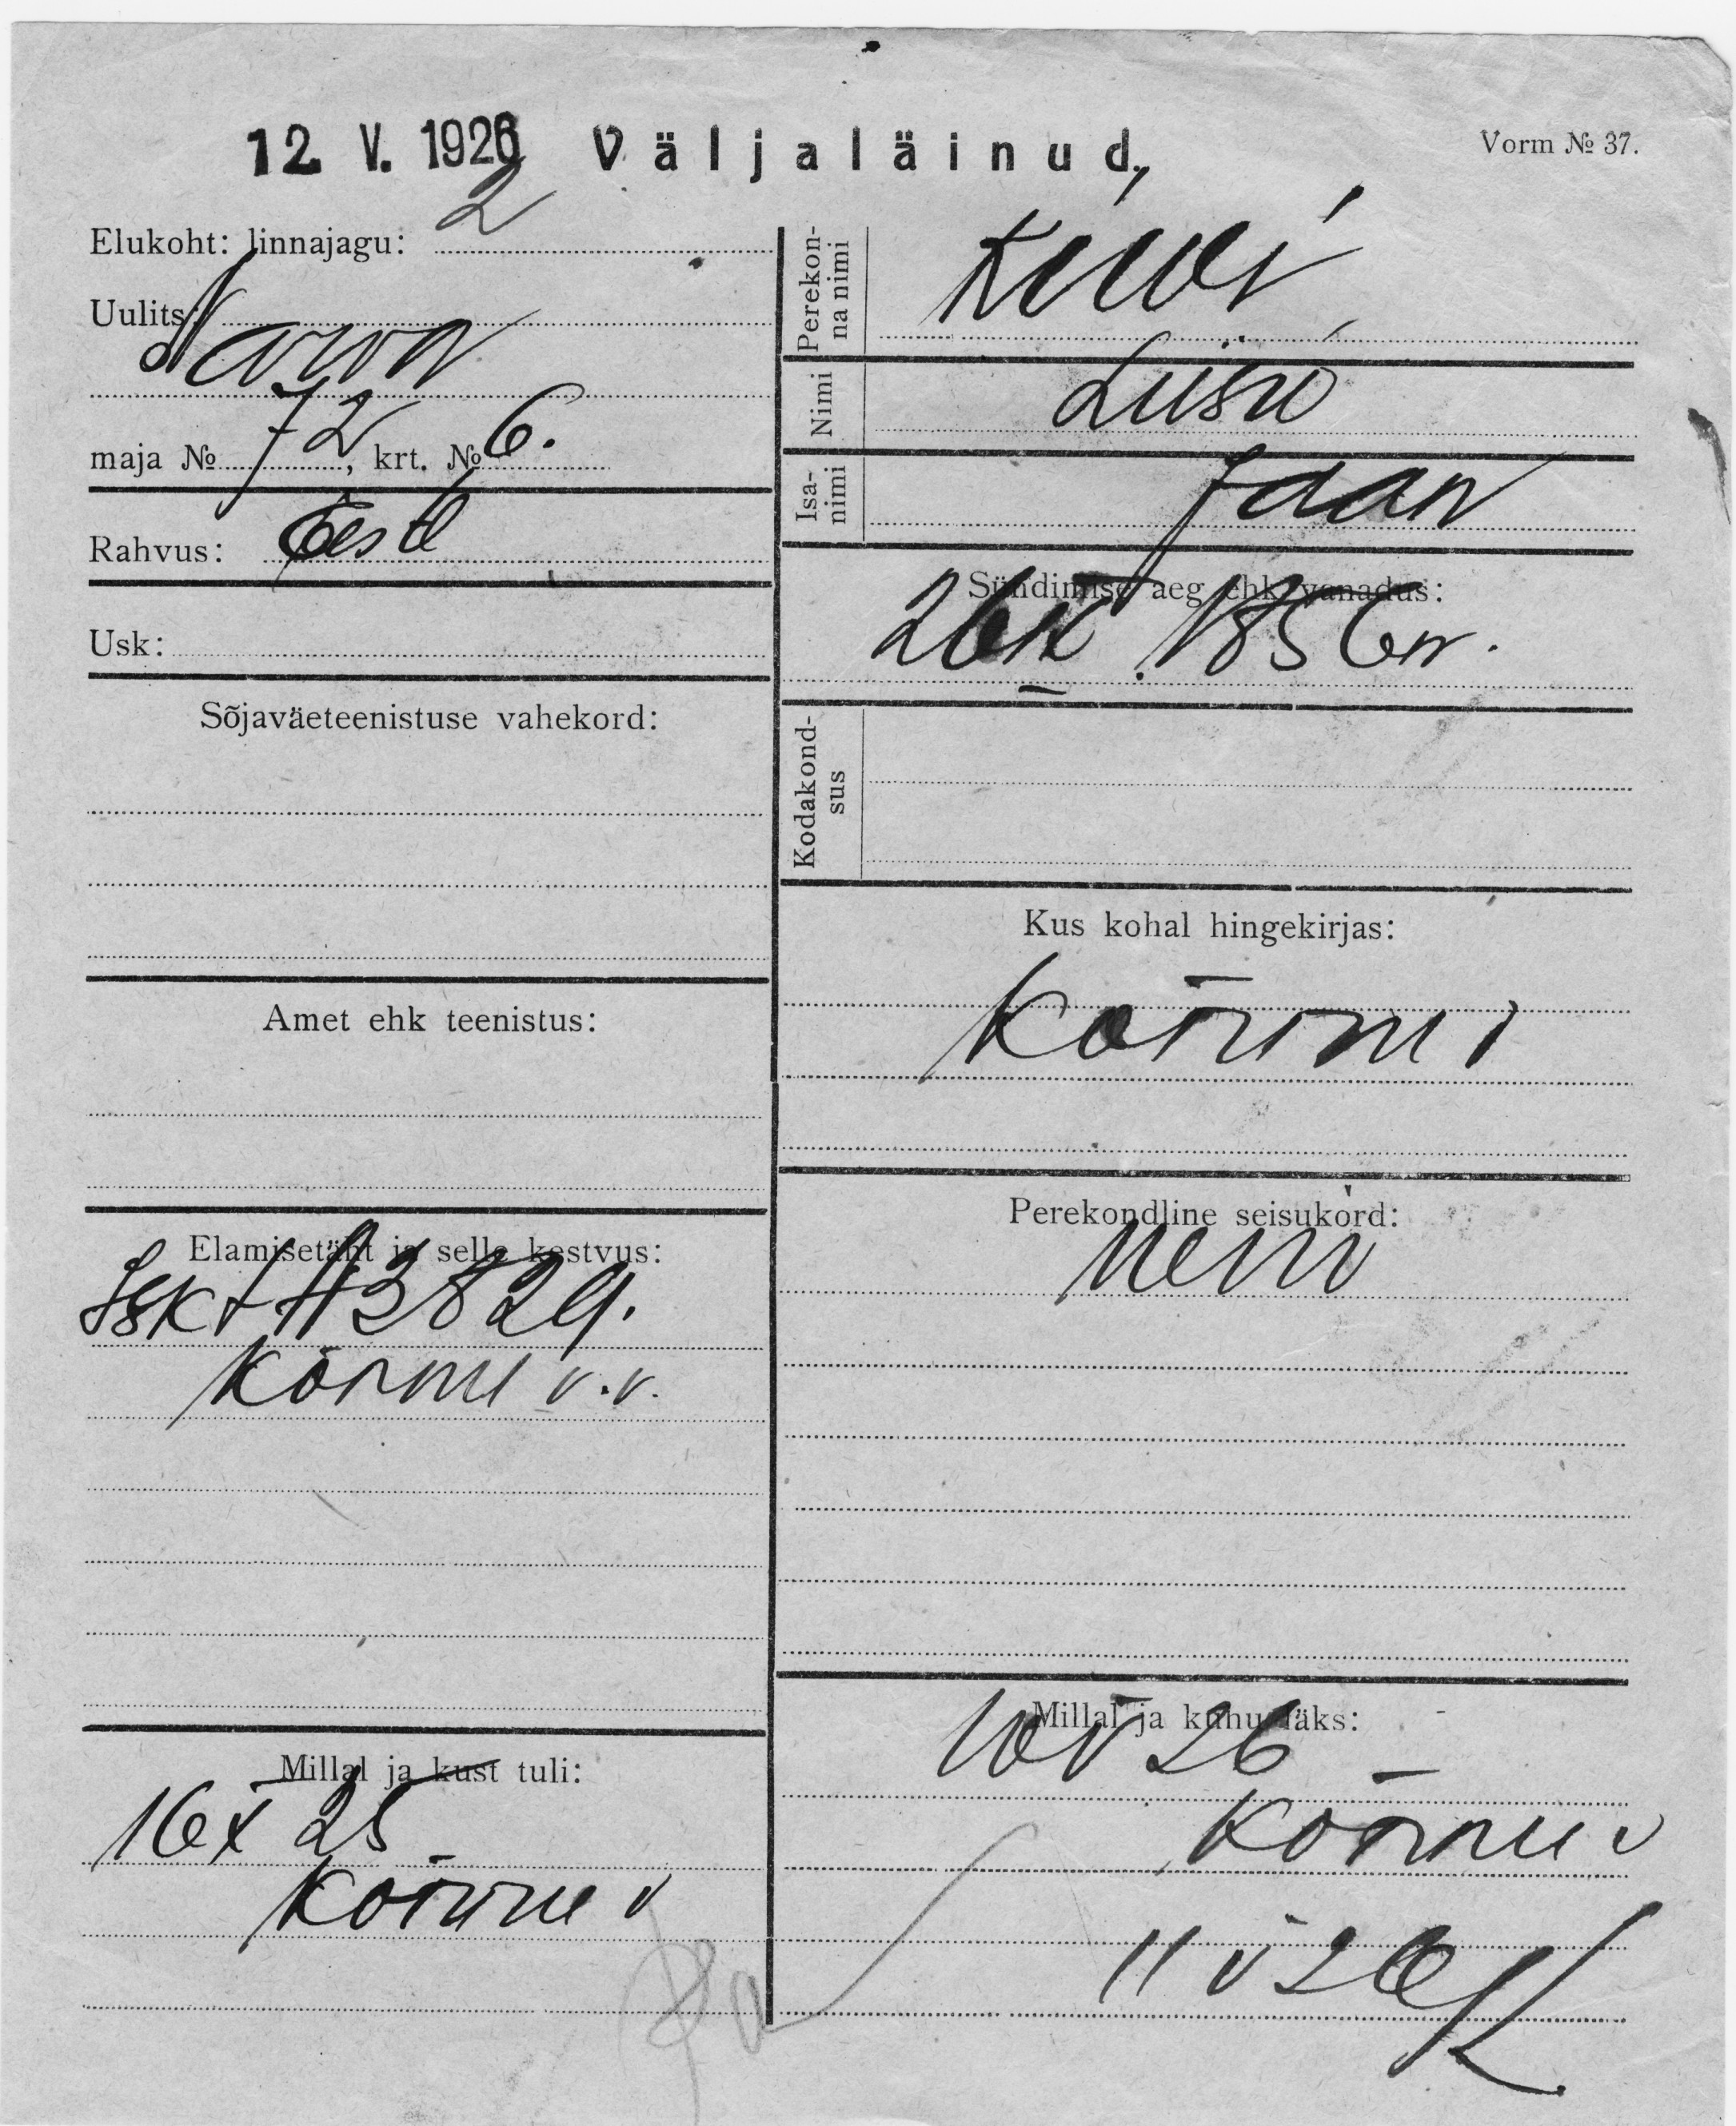 12. V. 1926 Väljaläinud,
Vorm № 37.
Elukoht: linnajagu: 2
Uulits: Narva
maja № 72, krt. № 6.
Rahvus: Eesti
Usk:
Sõjaväeteenistuse vahekord:
Amet ehk teenistus:
Elamisetäht ja selle kestvus:
Iskt A3829.
Kõnnu v.v.
Millal ja kust tuli:
16 X 25
Kõnnu v
Perekonna nimi Kiwi
Nimi Liisu
Isanimi Jaan
Sündimise aeg ehk vanadus:
1856
Kodakondsus
Kus kohal hingekirjas:
Kõnnu
Perekondline seisukord:
Millal ja kuhu läks:
10 V 26
Kõnnu v
11 V 26